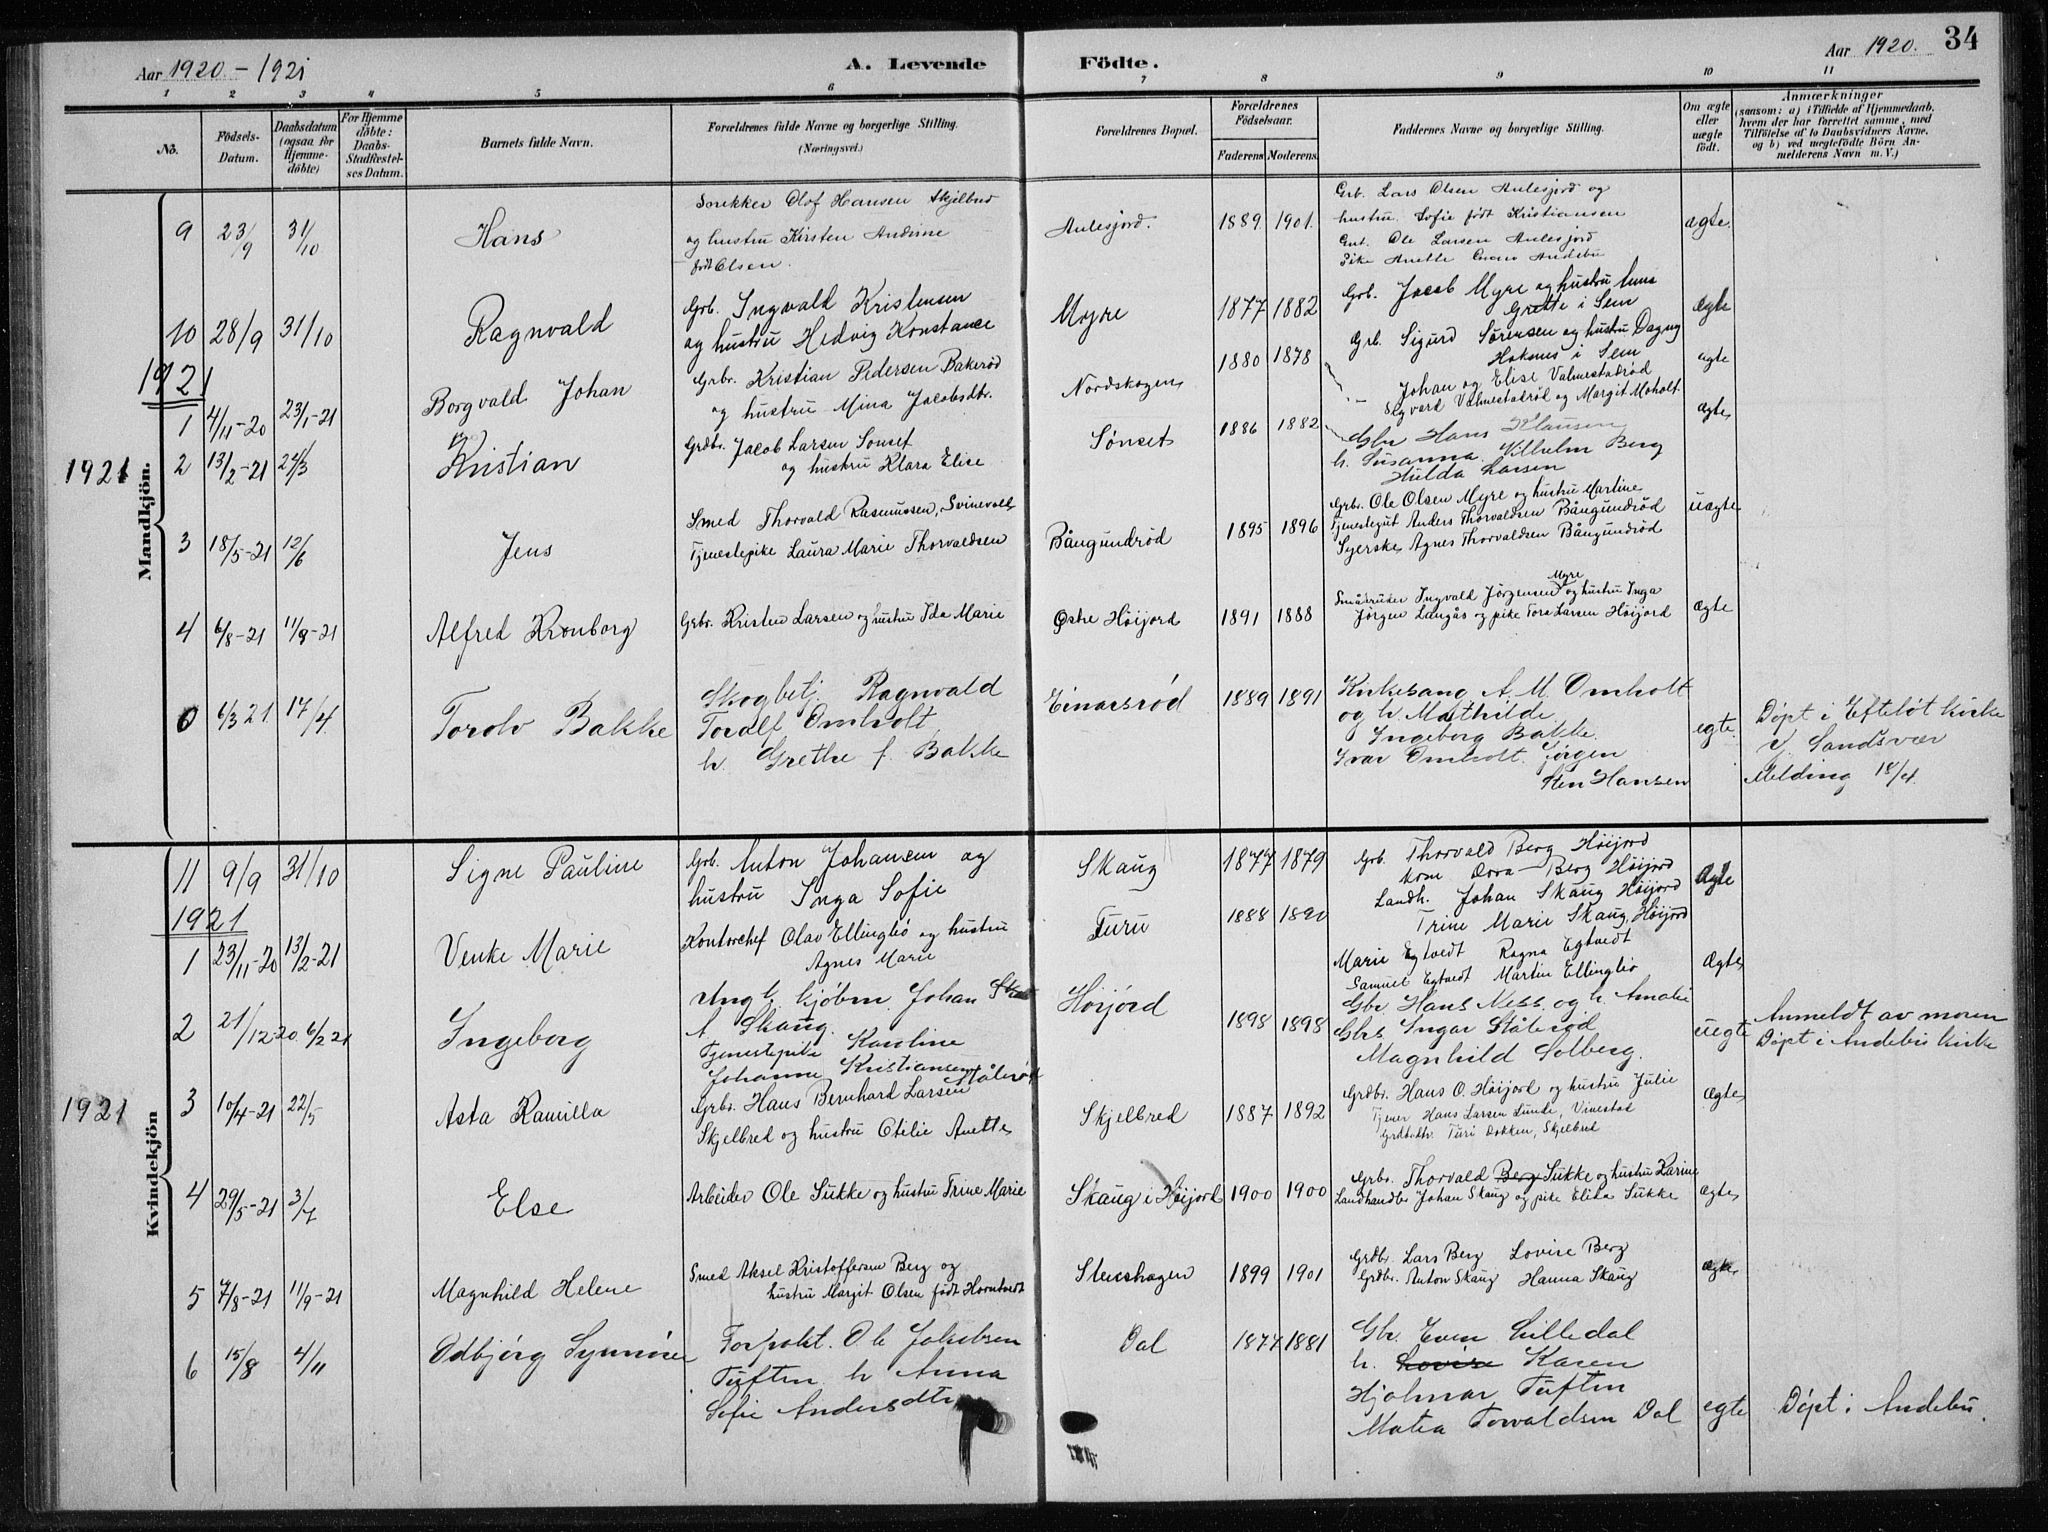 Aar 1920 - 1921
A. Levende
Födte.
Aar 1920.
34
1 2 3 4 5 6 7 8 9 10 11
No.
Födsels-Datum.
Daabsdatum (ogsaa for Hjemme-döbte)
For Hjemme döbte: Daabs-Stadfæstel-ses Datum.
Barnets fulde Navn.
Forældrenes fulde Navne og borgerlige Stilling.
(Næringsvei.)
Forældrenes Bopæl.
Forældrenes Födselsaar.
Faderens Moderens
Faddernes Navne og borgerlige Stilling.
Om ægte eller uægte födt.
Anmærkninger
(saasom: a) i Tilfælde af Hjemmedaab.
hvem der har forrettet samme, med
Tilföielse af to Daabsvidners Navne.
og b) ved uægtefödte Börn An-
melderens Navn m. V.)
Mandkjön.
9 23/9 31/10 Hans
Olof Hansen Skjelbred
og hustru Kirsten Andrine
født Olsen.
Aulesjord. 1889. 1901.
Grb. Lars Olsen Aulesjord og
hustru Sofie født Kristiansen
Gut. Ole Larsen Aulesjord
Pike Anette Andebu
ægte.
10 28/9 31/10 Ragnvald
Grb. Ingvald Kristensen
og hustru Hedvig Konstance
Myre 1877 1882
Grb. Jacob Myre og hustru Anna
Grette i Sem
Grb. Sigurd Sørensen og hustru Dagny
i Sem
ægte
1921
1 4/11-20 23/1-21 Borgvald Johan
Grbr. Kristian Pedersen Bakerød
og hustru Mina Jacobsdtr.
Nordskogen 1880 1878
Johan og Elise Valmestadrød
Sigvard Valmestadrød og Margit Moholt
ægte
1921
2 13/2-21 24/3 Kristian
Grdbr. Jacob Larsen Sønset
og hustru Klara Elise
Sønset 1886 1882
Gbr Hans Klausen
h. Susanna. Vilhelm Berg
Hulda Larsen
ægte
3 18/5-21 12/6 Jens
Smed Thorvald Rasmussen, Svinevoll
Tjenestepike Laura Marie Thorvaldsen
Bångundrød 1895 1896
Grbr. Ole Olsen Myre og hustru Martine
Tjenestegut Anders Thorvaldsen Bångundrød
Syerske Agnes Thorvaldsen Bångundrød
uægte
4 6/8-21 11/9-21 Alfred Kronborg
Grbr. Kristen Larsen og hustru Ida Marie
Østre Höijord 1891 1888
Småbruker Ingvald Jørgensen Myre og hustru Inga
Jørgen Langås og pike Tora Larsen Höijord
ægte
0 6/3 21 17/4. Torolv Bakke
Skogbetj. Ragnvald
Toralf Omholt
h. Grethe f. Bakke
Einarsrød 1889 1891
Kirkesang. A. M. Omholt
og h. Mathilde
Ingeborg Bakke.
Ivar Omholt. Jørgen
Sten Hansen
egte.
Døpt i Efteløt kirke
i Sandsvær
Melding 18/4.
Kvindekjön
11 9/9 31/10 Signe Pauline
Grb. Anton Johansen og
hustru Inga Sofie
Skaug 1877 1879
Grb. Thorvald Berg Höijord
kone Dora Berg Höijord
Landh. Johan Skaug Höijord
Trine Marie Skaug, Höijord
ægte
1921
1 23/11-20 13/2-21 Venke Marie
Kontorchef Olav Ellingbø og hustru
Agnes Marie
Furu 1888 1890
Marie Egtvedt Ragna Egtvedt
Samuel Egtvedt Martin Ellingbø
ægte
2 21/12-20 6/2 21 Ingeborg
Ung k. kjøbm. Johan
A. Skaug.
Tjenestepike Karoline
Johanne Kristiansen Stålerød
Höijord 1898 1898
Gbr Hans Ness og h. Amalie
Gbrs Ingar Stålerød
Magnhild Solberg.
uegte
Anmeldt av moren
Døpt i Andebu kirke
1921
3 10/4-21 22/5 Asta Kamilla
Grbr. Hans Bernhard Larsen
Skjelbred og hustru Otilie Anette
Skjelbred 1887 1892
Grdbr. Hans O. Höijord og hustru Julie
Tjener Hans Larsen Lunde, Vivestad
Grdbdtr. Turi Dokken, Skjelbred
ægte
4 29/5-21 3/7 Else
Arbeider Ole Sukke og hustru Trine Marie
Skaug i Höijord 1900 1900
Grbr. Thorvald Berg Sukke og hustru Karine
Landhandler Johan Skaug og pike Elida Sukke
ægte
5 7/8-21 11/9-21 Magnhild Helene
Smed Aksel Kristoffersen Berg og
hustru Margit Olsen født Horntvedt
Stenshagen 1899 1901
Grdbr. Lars Berg Lovise Berg
Grdbr. Anton Skaug Hanna Skaug
ægte
6 15/8 4/11 Odbjørg Synnøve
Forpakt. Ole Jakobsen
Tuften h. Anna
Sofie Andersdtr
Dal 1877 1881
Gbr. Even Lilledal
h. Lovise Karen
Hjalmar Tuften
Matea Torvaldsen Dal
egte
Døpt i Andebu.